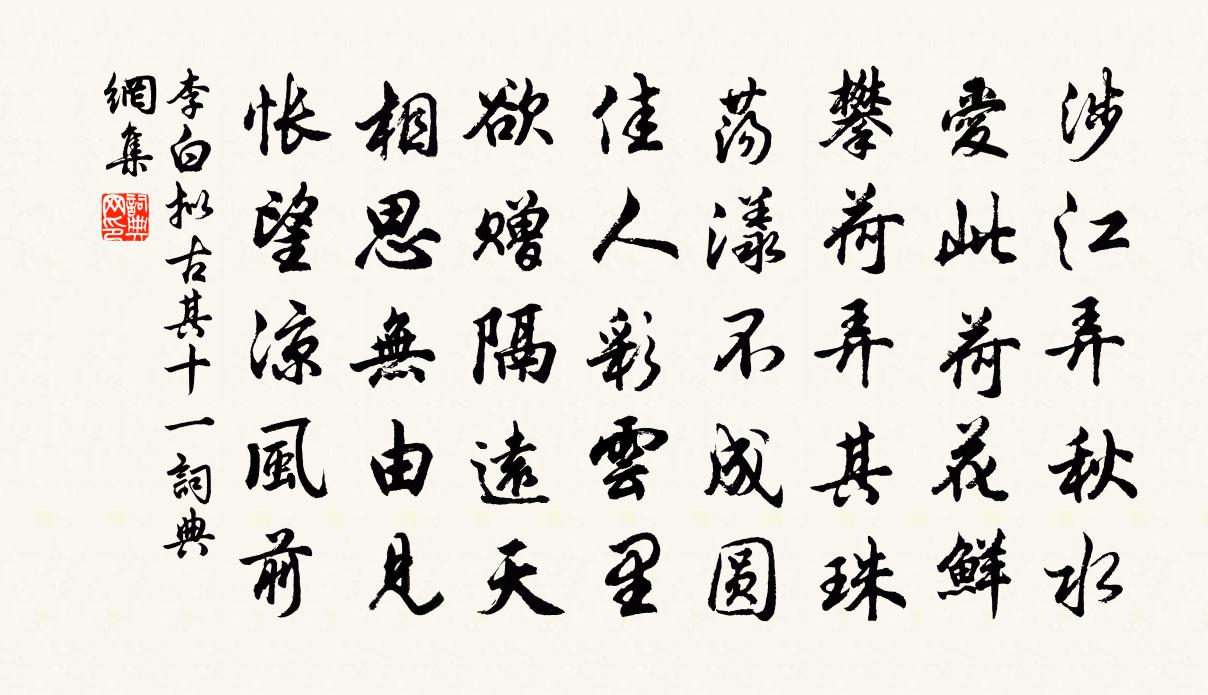 涉江弄秋水
愛此荷花鮮
攀荷弄其珠
蕩漾不成圓
佳人彩雲里
欲贈隔遠天
相思無由見
悵望涼風前
李白拟古其十一詞典
網集
詞典
网印